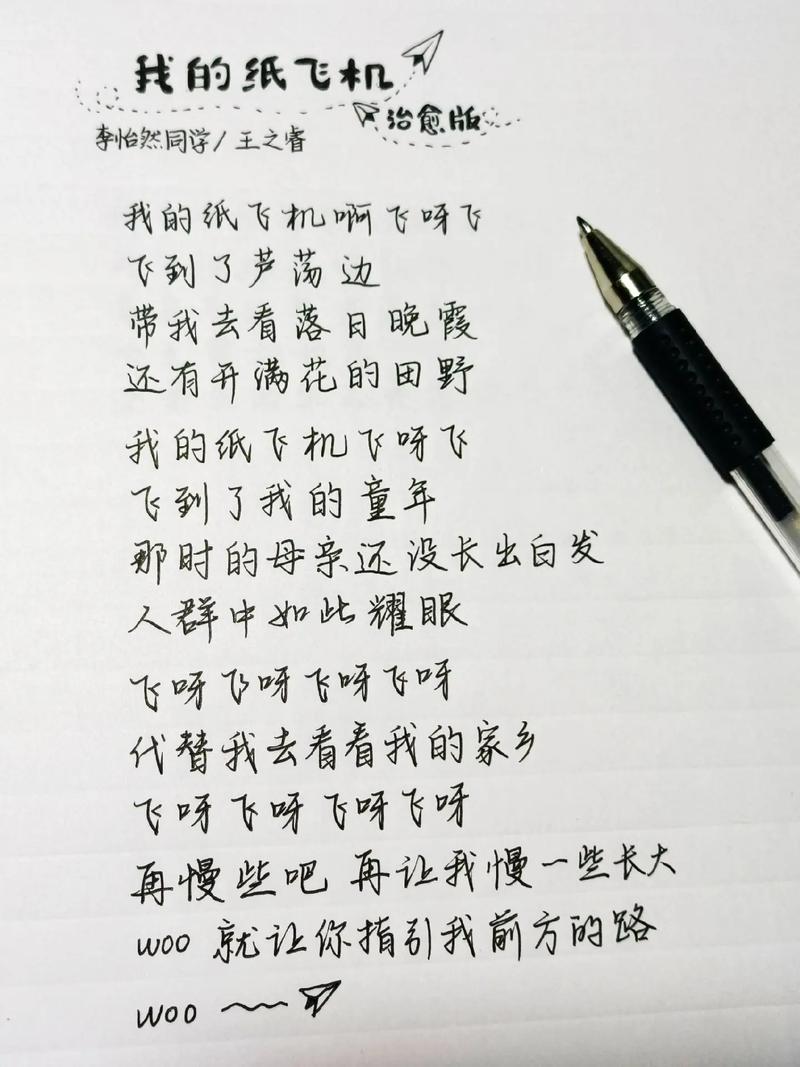 我的纸飞机
治愈版
李怡然同学/王之睿
我的纸飞机啊飞呀飞
飞到了芦荡边
带我去看落日晚霞
还有开满花的田野
我的纸飞机飞呀飞
飞到了我的童年
那时的母亲还没长出白发
人群中如此耀眼
飞呀飞呀飞呀飞呀
代替我去看看我的家乡
飞呀飞呀飞呀飞呀
再慢些吧 再让我慢一些长大
woo 就让你指引我前方的路
woo